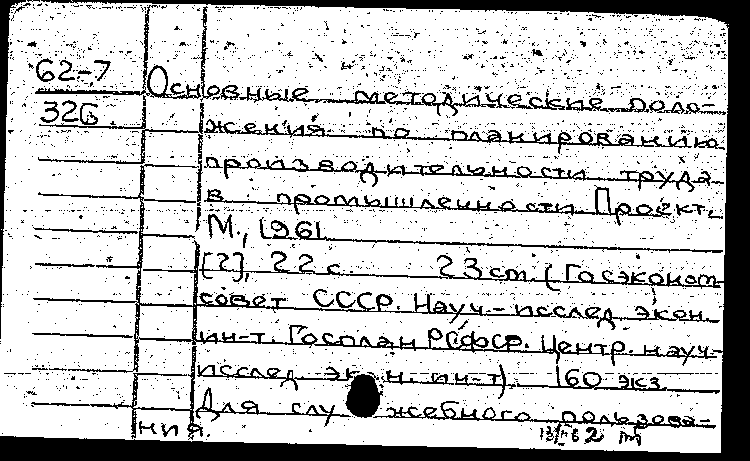 62-7
326
Основные методические поло-
жения по планированию
производительности труда
в промышленности. Проект.
М., 1961.
[2], 22 с. 23 см. (Госэконом
совет СССР. Науч.-исслед. экон.
ин-т. Госплан РСФСР. Центр. науч-
исслед. экон. ин-т). 160 экз.
Для служебного пользова-
ния.